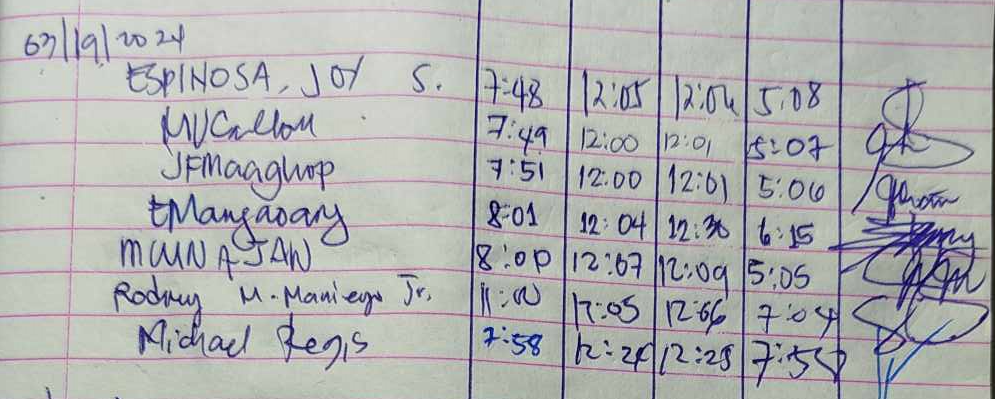 03/19/2024
ESPINOSA, JOY S. 7:48 12:05 12:06 5:08
MVCallou 7:49 12:00 12:01 5:07
JFMaaghop 7:51 12:00 12:01 5:06
EMangaoang 8:01 12:04 12:30 6:15
8:00 12:07 12:09 5:05
Rodney M. Maniego Jr. 11:00 12:05 12:06 7:04
Michael Regis 7:58 12:24 12:25